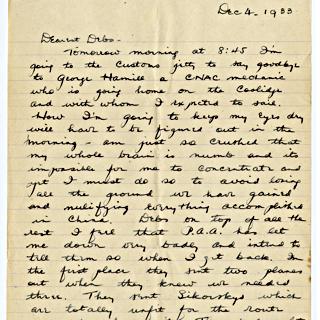 Dec 4 - 1933
Dearest Debs -
Tomorrow morning at 8:45 I'm
going to the Customs jetty to say goodbye
to George Hamill a CNAC mechanic
who is going home on the Coolidge
and with whom I expected to sail.
How I'm going to keep my eyes dry
will have to be figured out in the
morning - am just so crushed that
my whole brain is numb and its
impossible for me to concentrate and
yet I must do so to avoid losing
all the ground we have gained
and nulifying everything accomplished
in China. Debs on top of all the
rest I feel that P.A.A. has let
me down very badly and intend to
tell them so when I get back. In
the first place they sent two planes
out when they knew we needed
three. They sent Sikorskys which
are totally unfit for the route